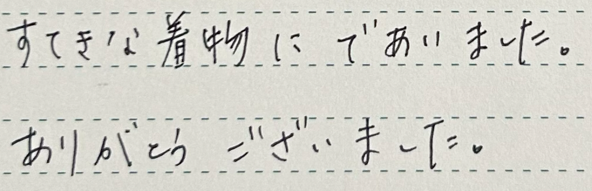 すてきな着物にであいました。
ありがとうございました。